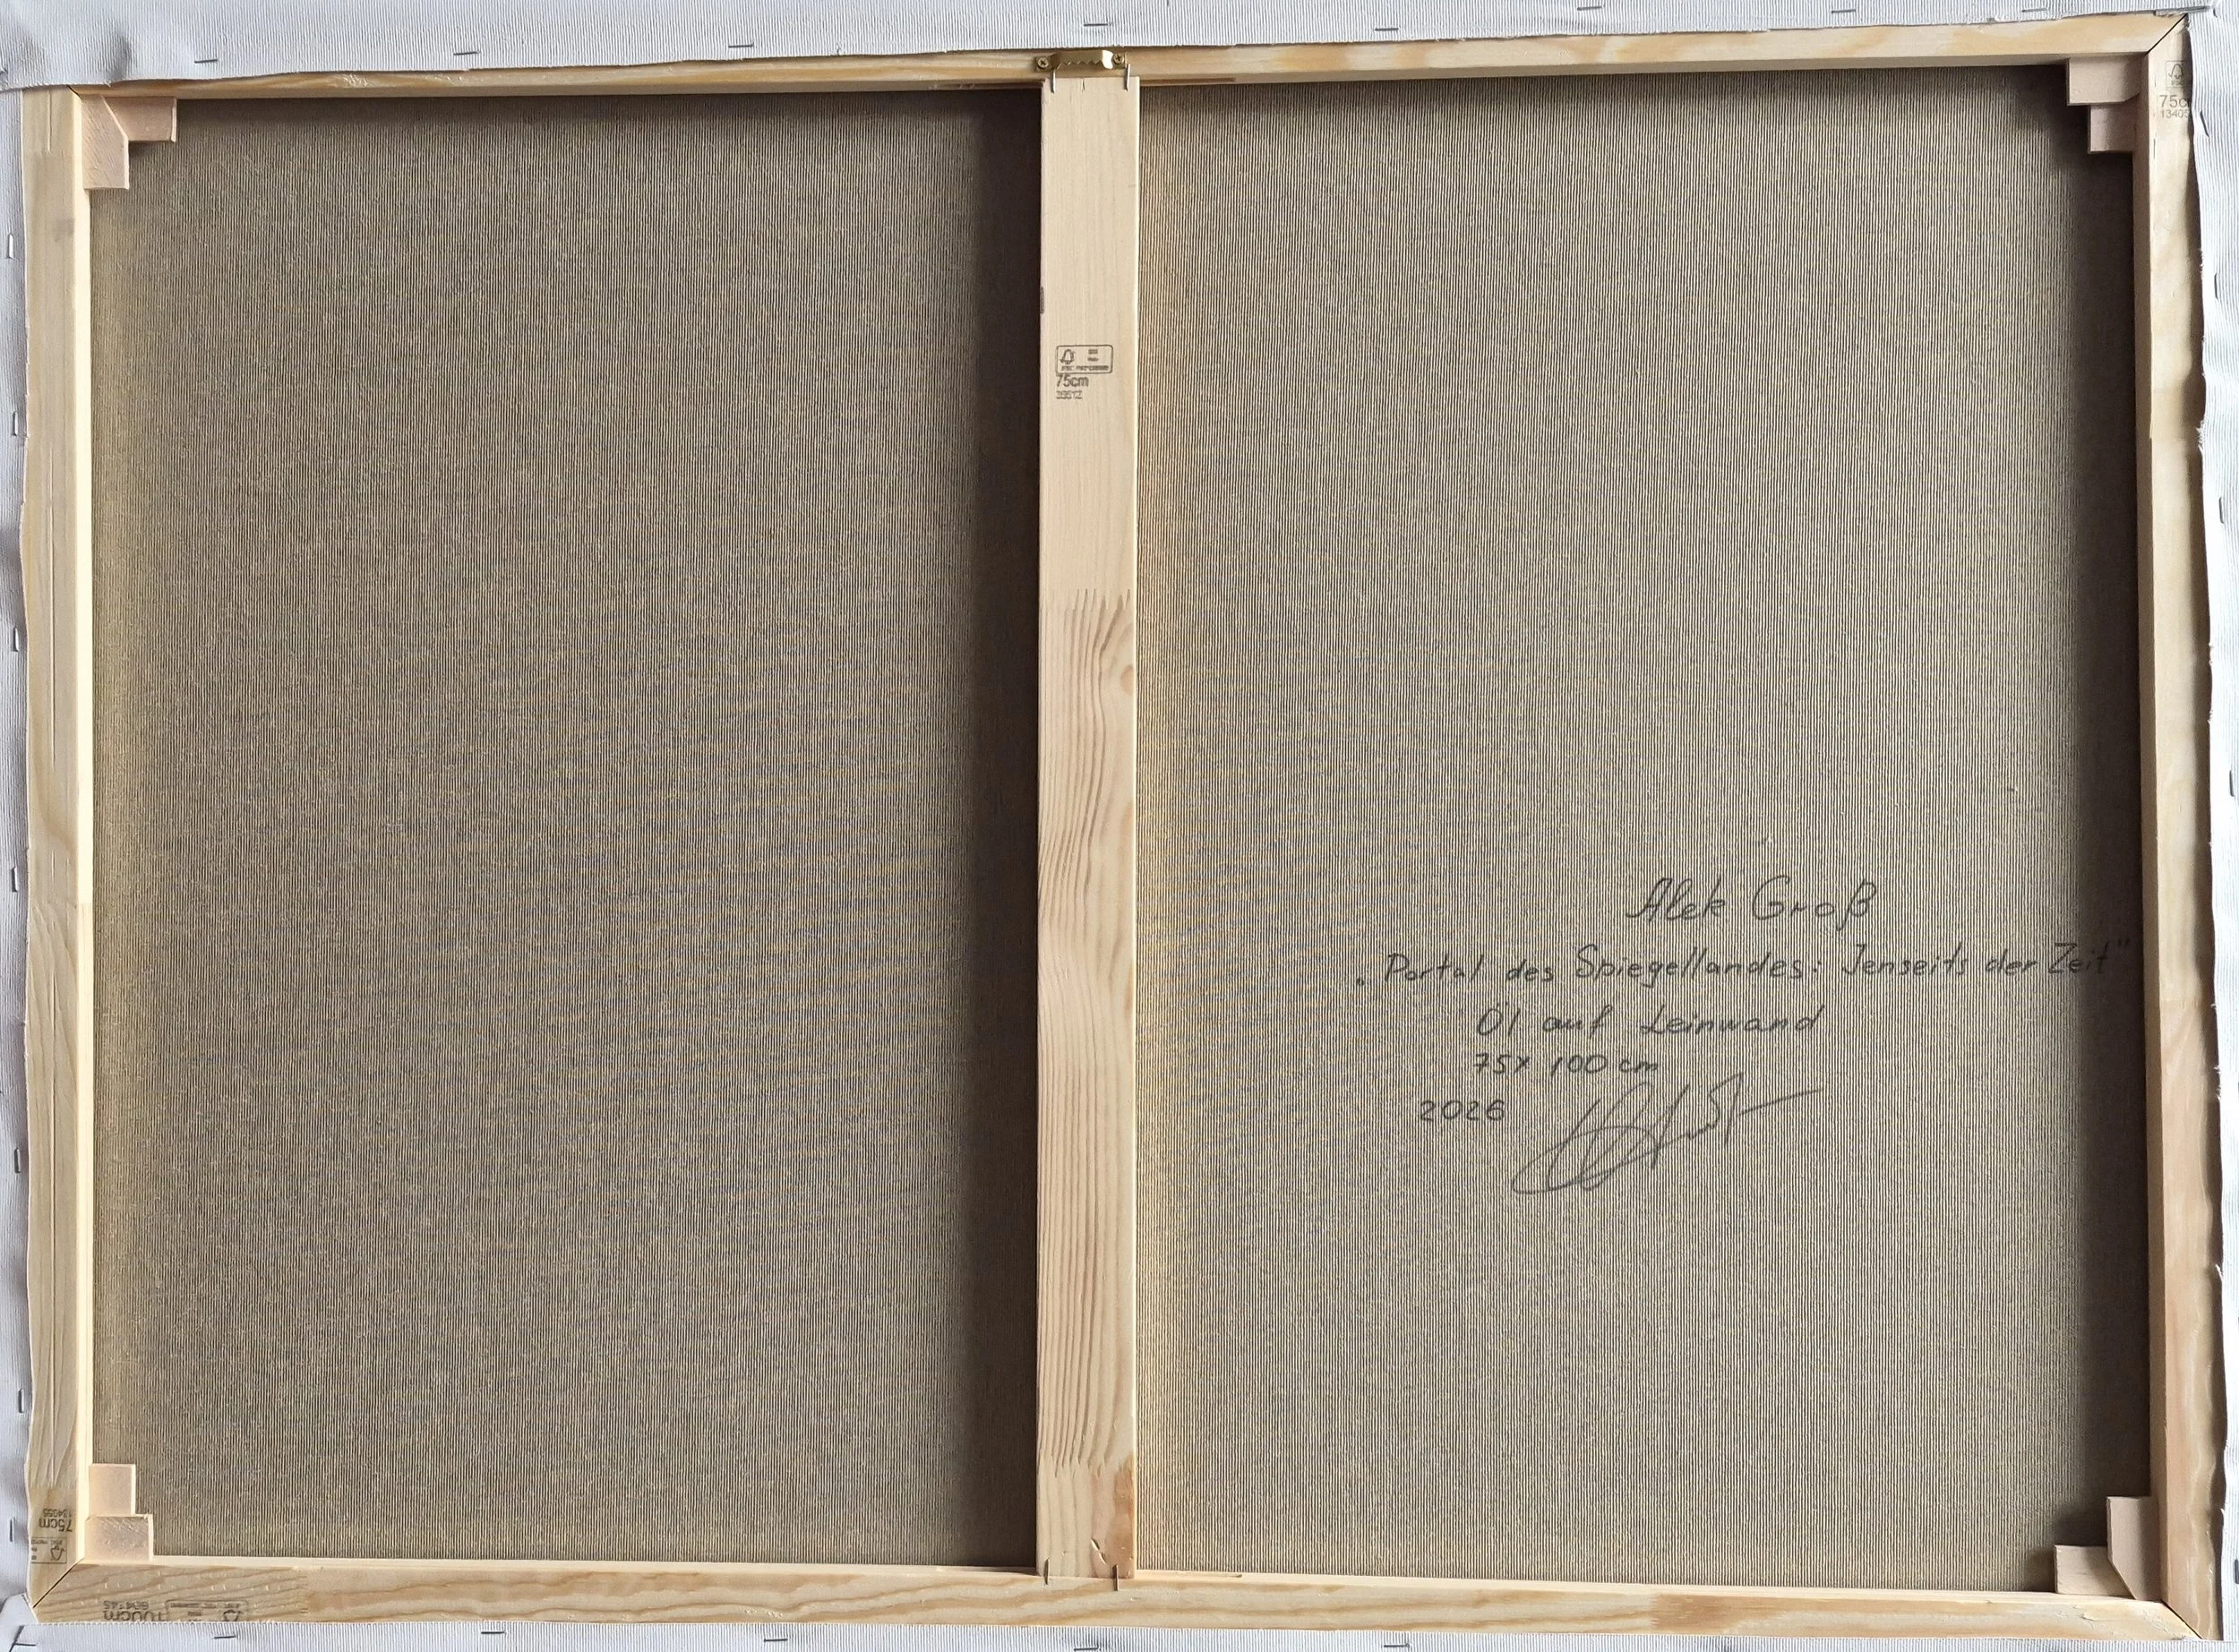 75cm
75cm
Alek Groß
„Portal des Spiegellandes: Jenseits der Zeit"
Öl auf Leinwand
75x 100 cm
2026
75cm
100cm